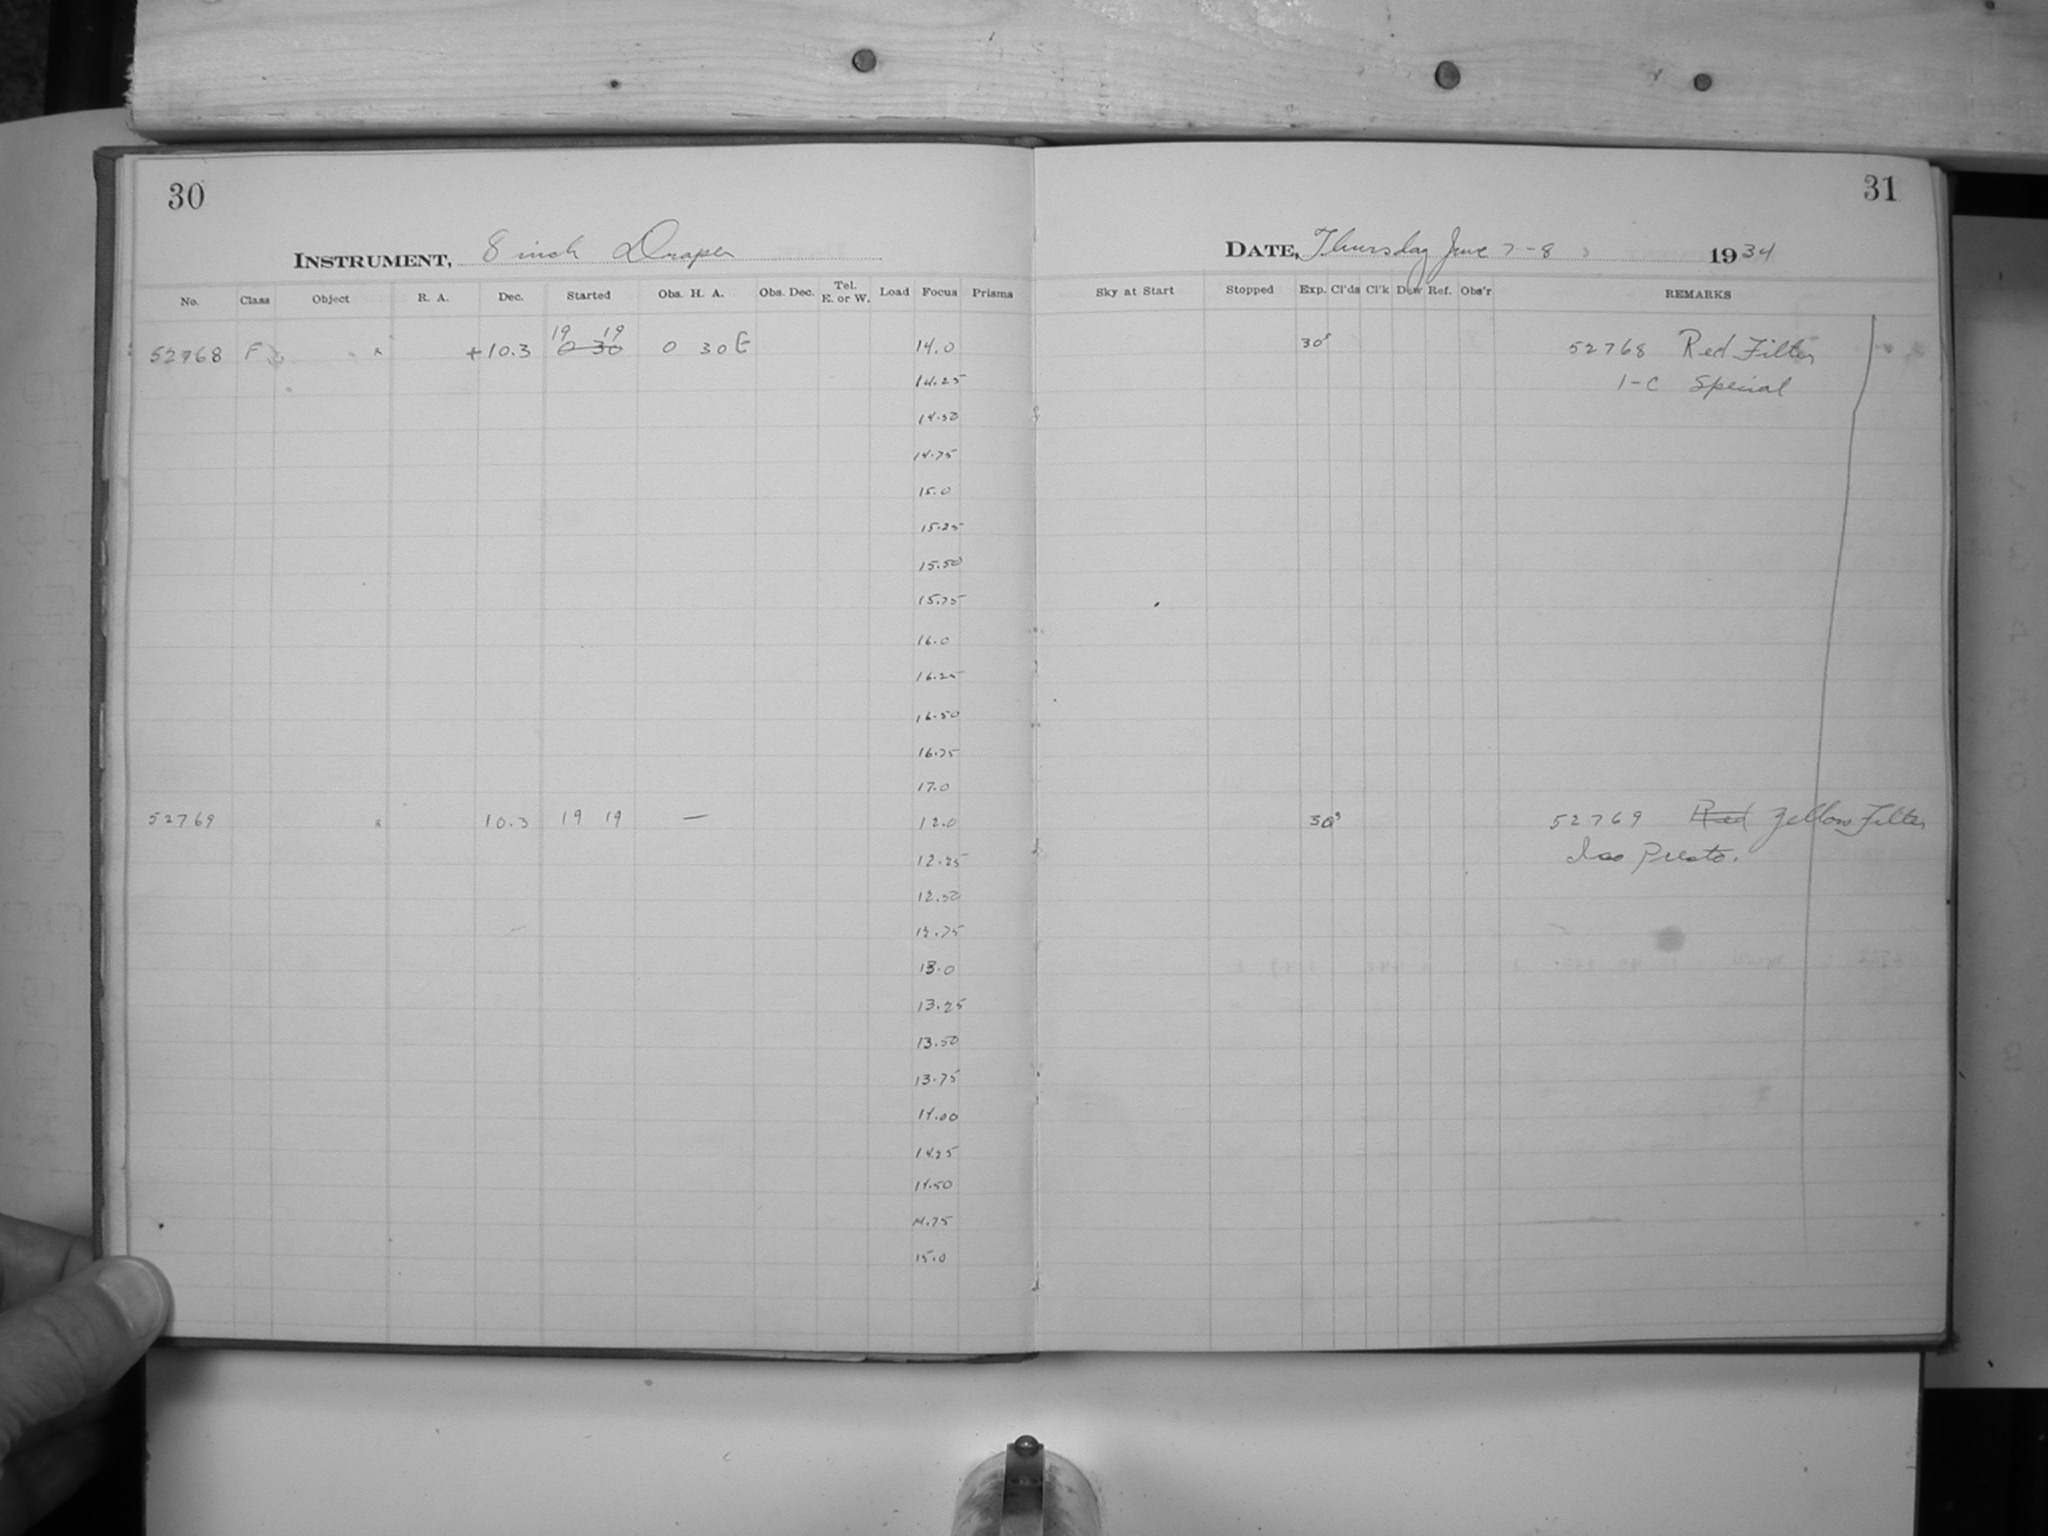 30
31
INSTRUMENT, 8 inch Draper
DATE, Thursday June 7-8 1934
No. Class Object R. A. Dec. Started Obs. H. A. Obs. Dec. Tel. E. or W. Load Focus Prisms Sky at Start Stopped Exp. Cl'ds Cl'k Dew Ref. Obs'r REMARKS
19 19
52768 F +10.3 0 30 0 30 E 14.0 30s 52768 Red Filter
14.25 1-C Special
14.50
14.75
15.0
15.25
15.50
15.75
16.0
16.25
16.50
16.75
17.0
52769 10.3 19 19 — 12.0 30s 52769 Red Yellow Filter
12.25 Iso Presto.
12.50
12.75
13.0
13.25
13.50
13.75
14.00
14.25
14.50
14.75
15.0